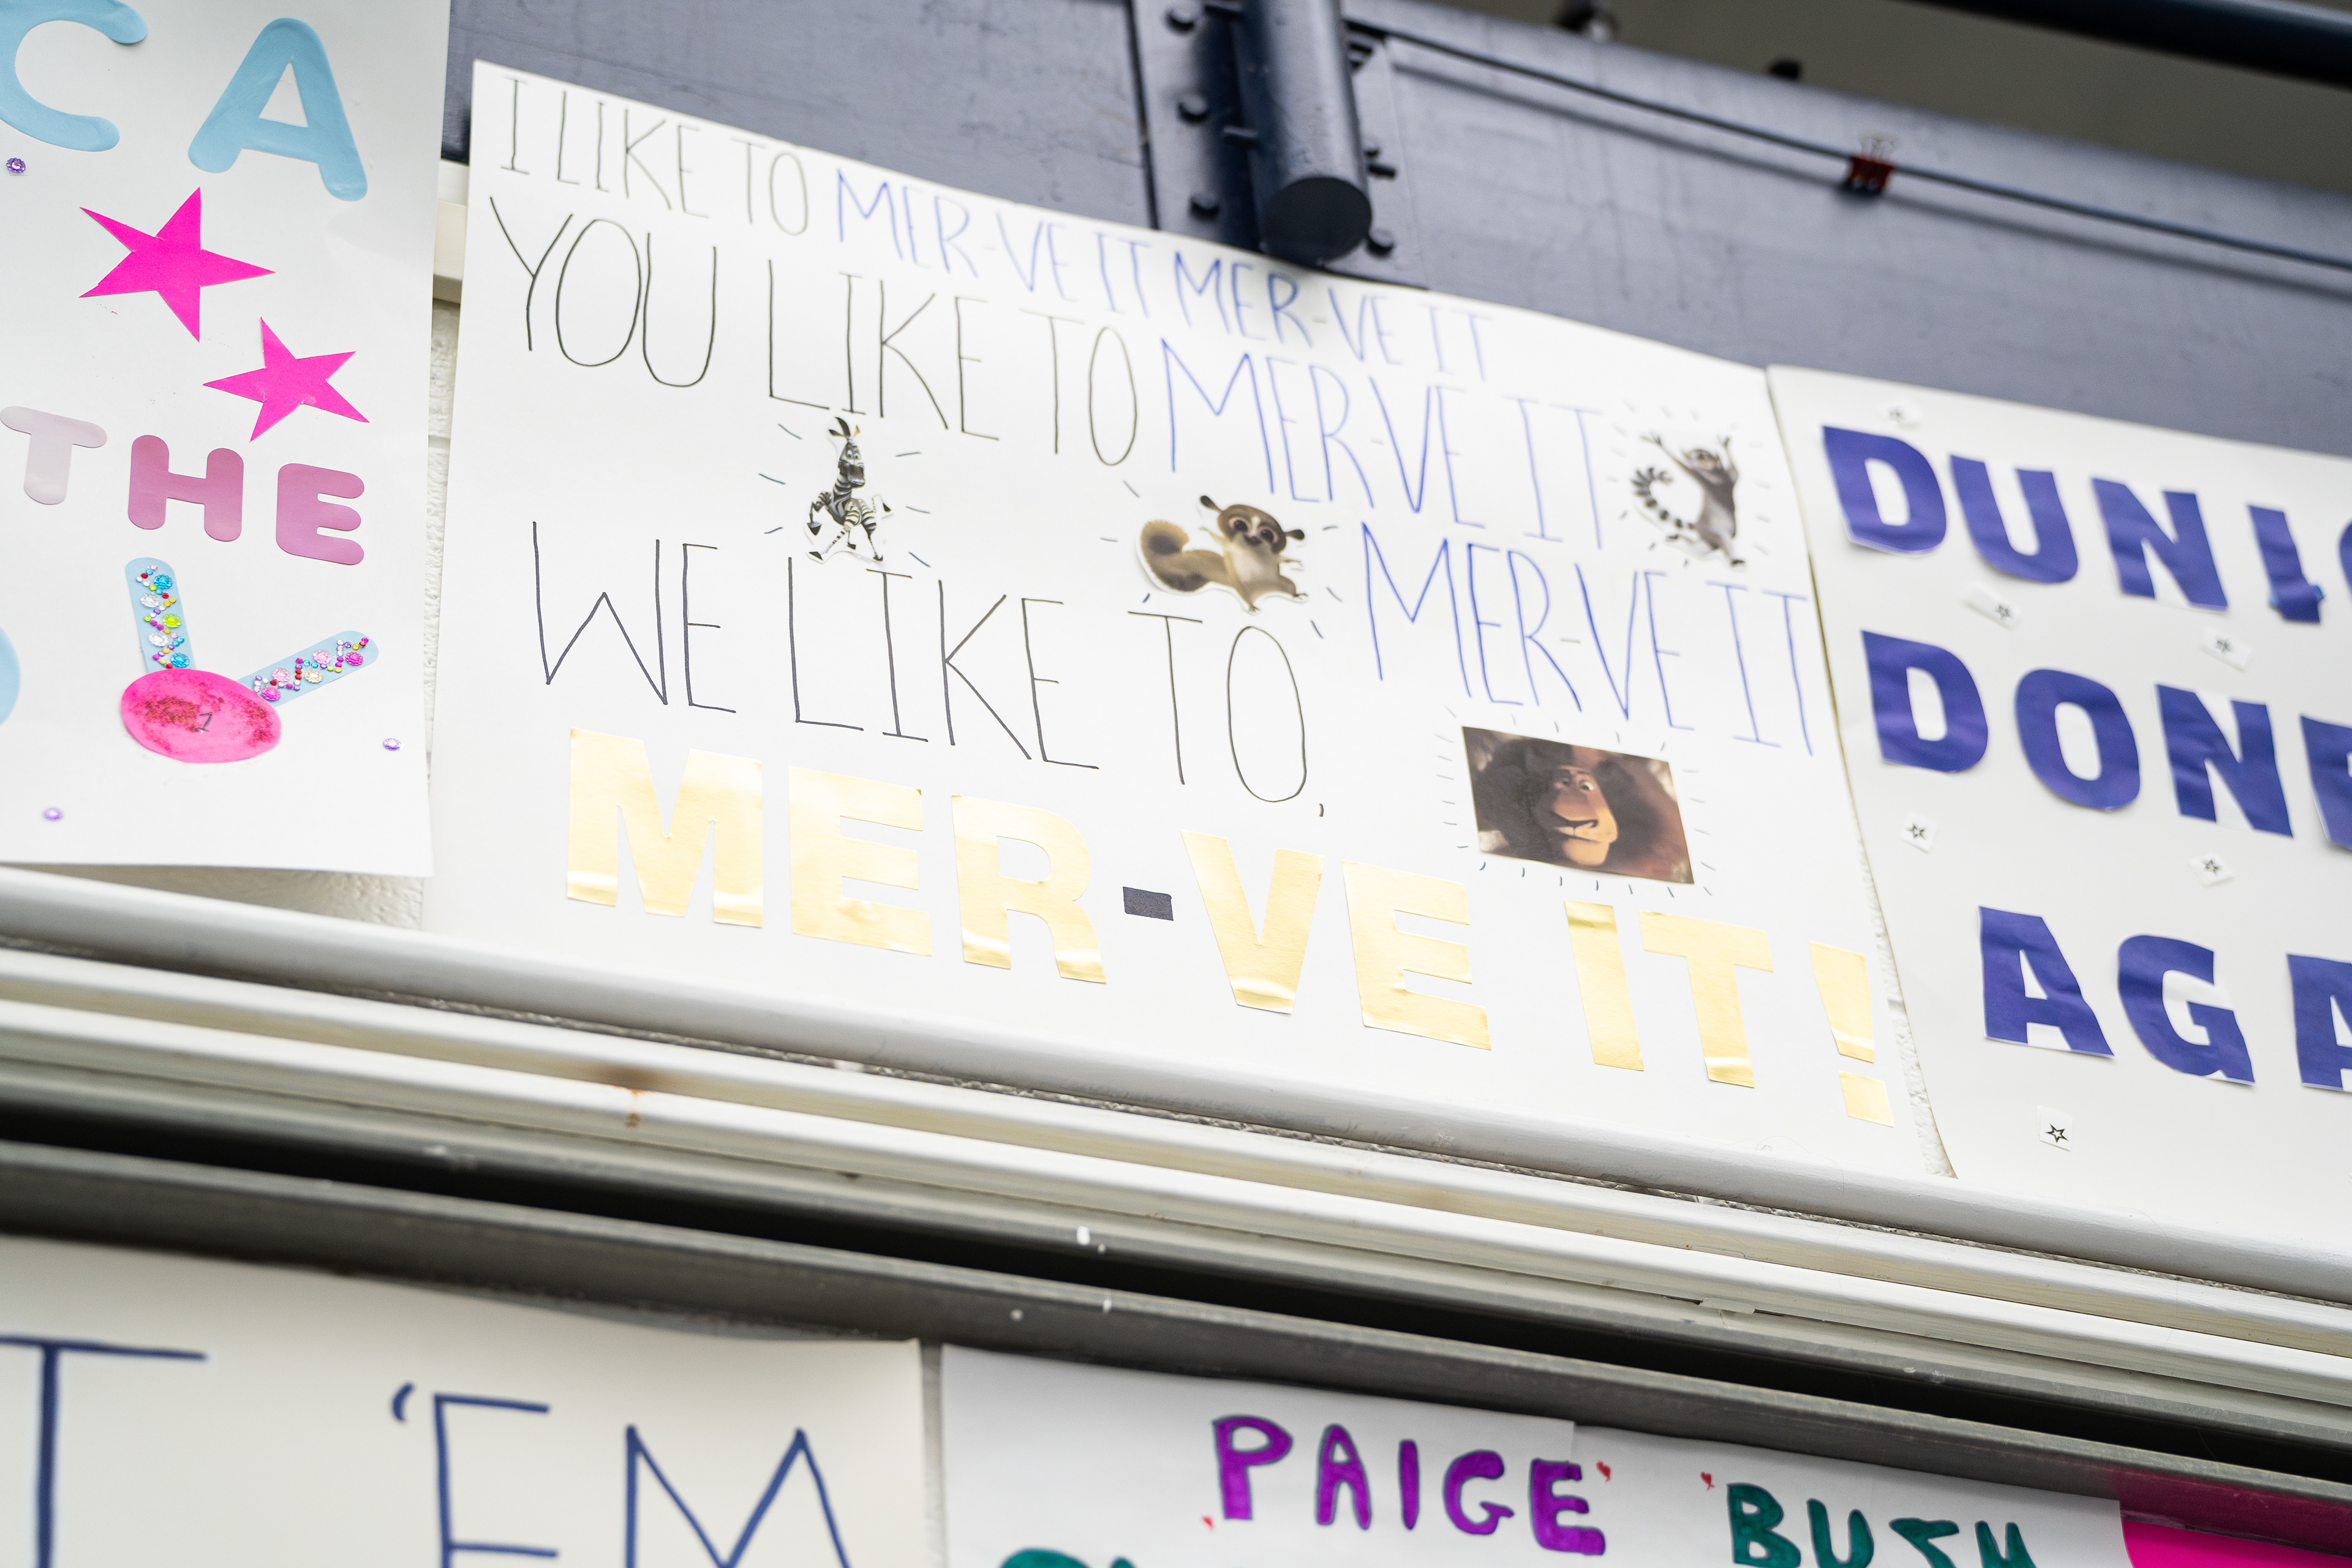 CA
THE
1
I LIKE TO MER-VE IT MER-VE IT
YOU LIKE TO MER-VE IT
WE LIKE TO, MER-VE IT
MER-VE IT!
DUN
DON
AGA
T 'EM
PAIGE 'BUSH